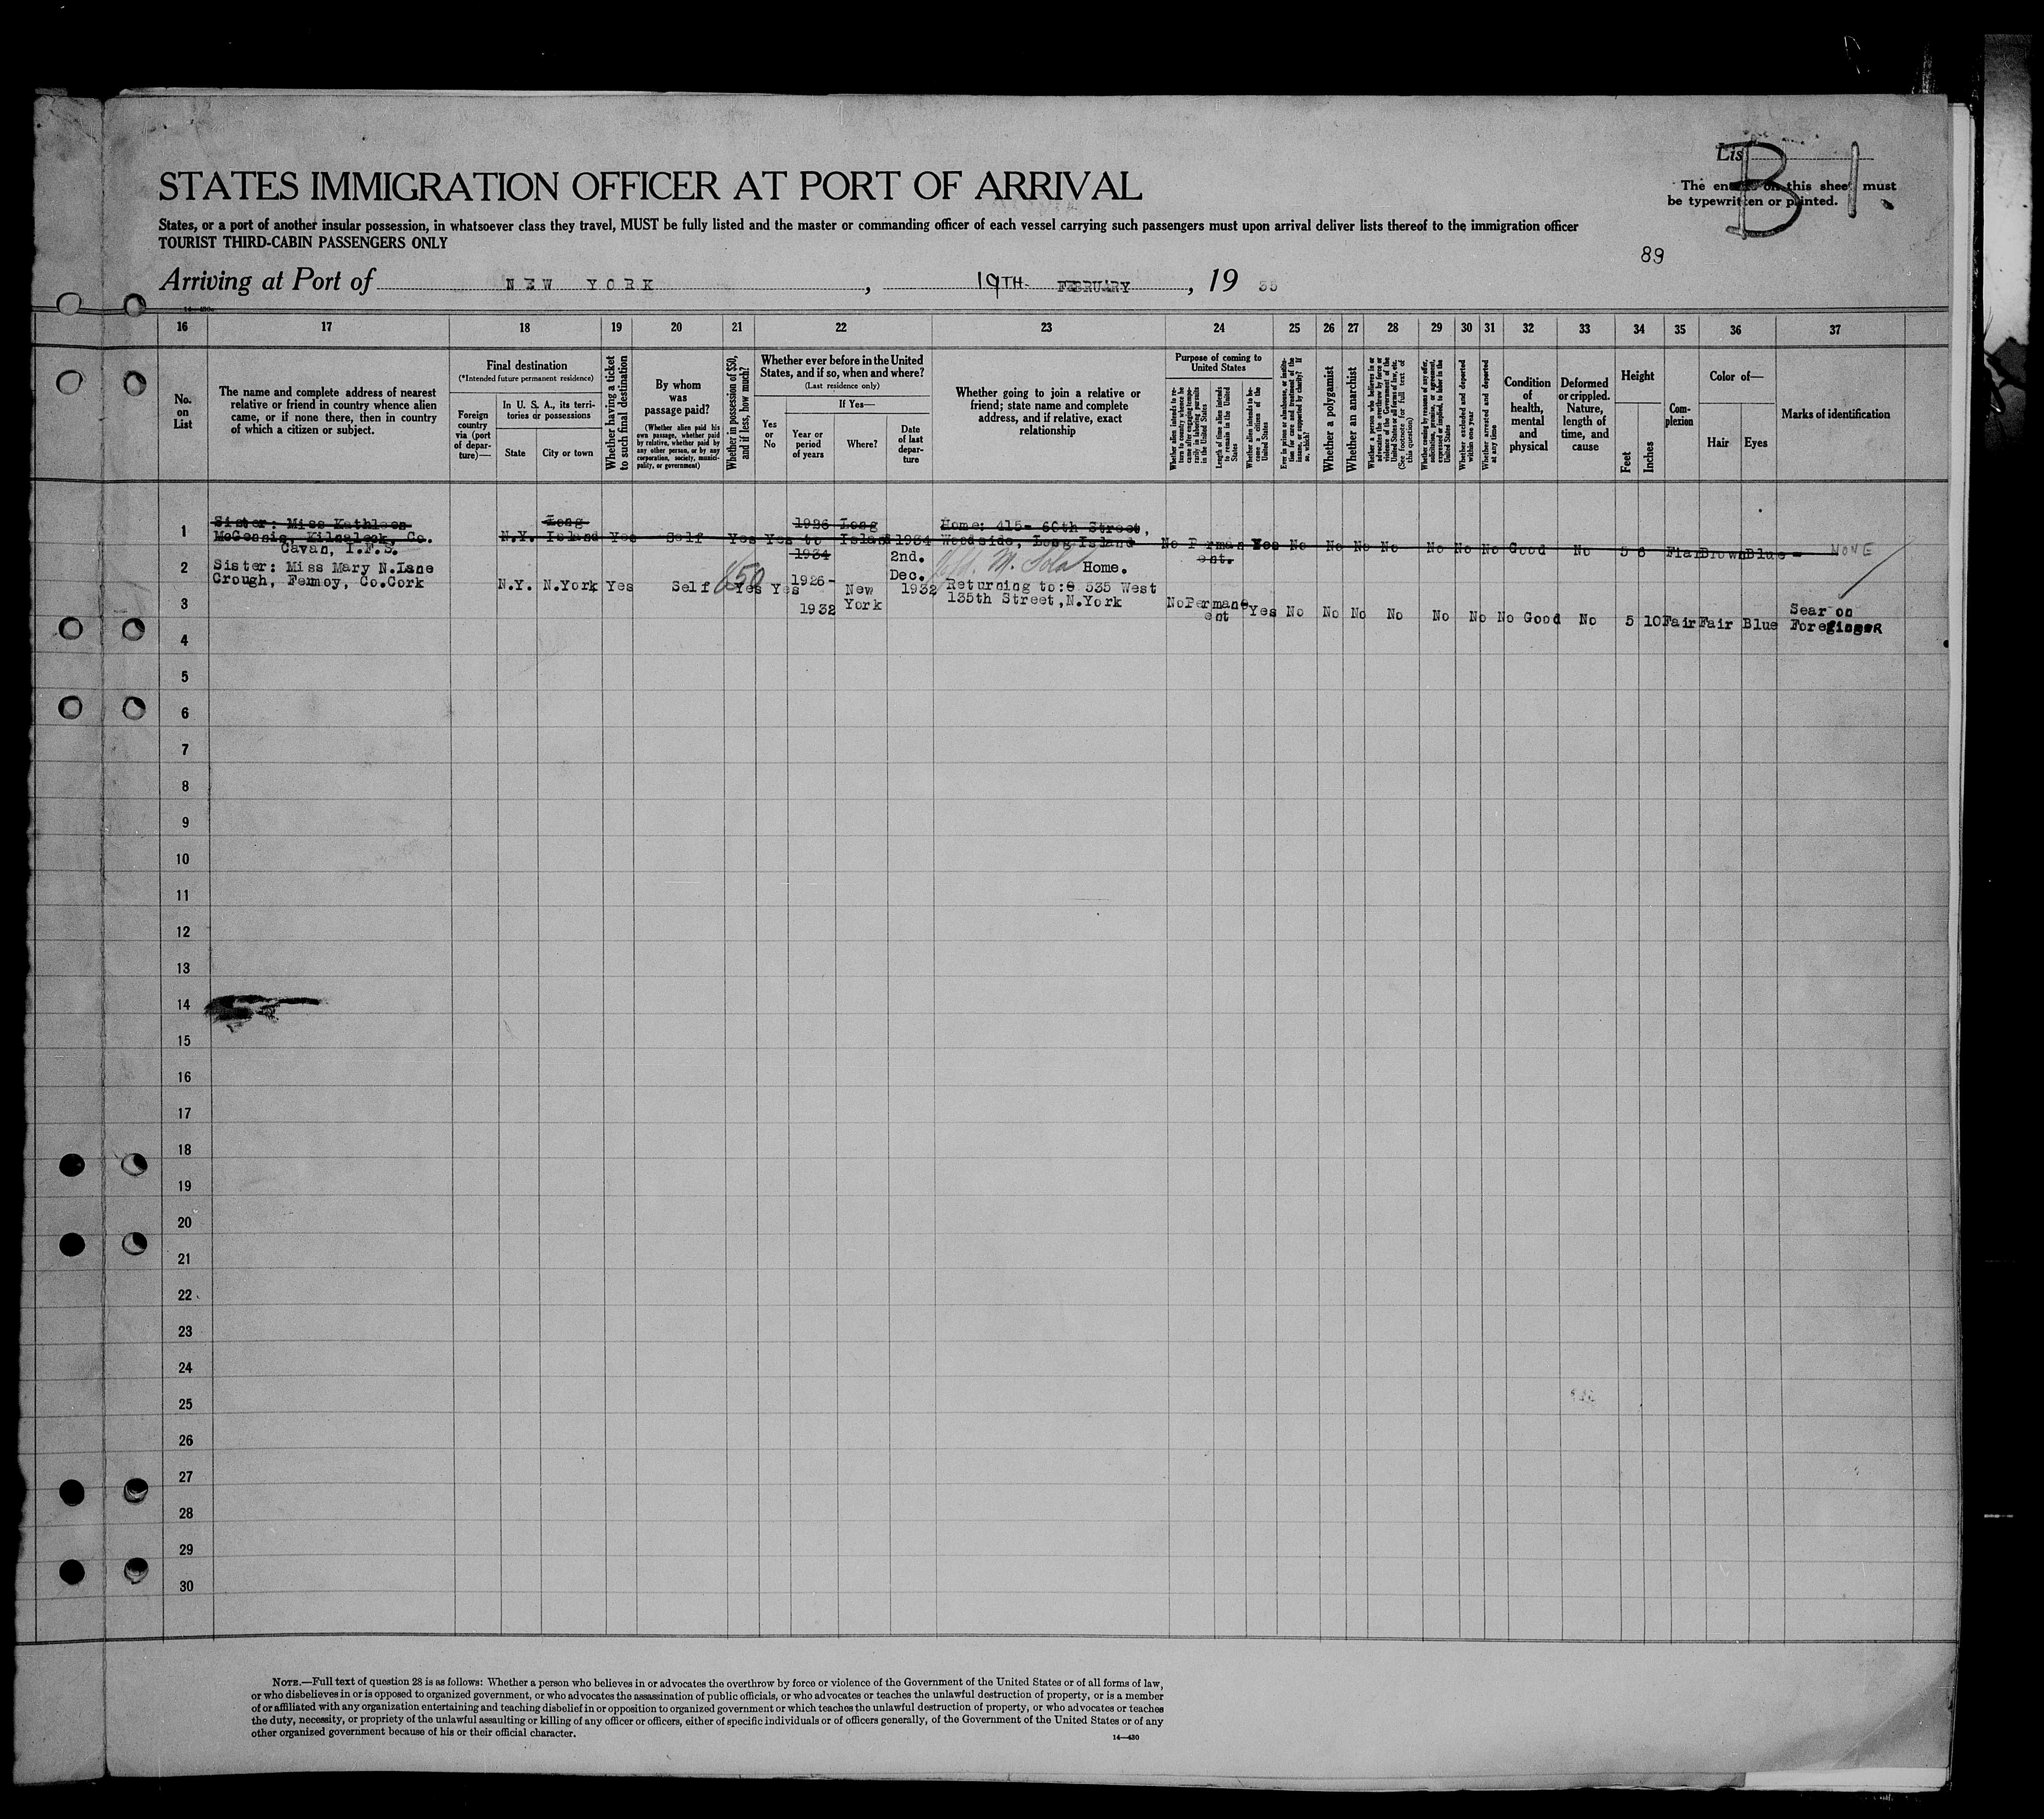 List B 1.
STATES IMMIGRATION OFFICER AT PORT OF ARRIVAL
The entries on this sheet must
be typewritten or printed.
States, or a port of another insular possession, in whatsoever class they travel, MUST be fully listed and the master or commanding officer of each vessel carrying such passengers must upon arrival deliver lists thereof to the immigration officer
TOURIST THIRD-CABIN PASSENGERS ONLY
89
Arriving at Port of NEW YORK, 19TH FEBRUARY, 19 35
14—430
16 17 18 19 20 21 22 23 24 25 26 27 28 29 30 31 32 33 34 35 36 37
No.
on
List
The name and complete address of nearest
relative or friend in country whence alien
came, or if none there, then in country
of which a citizen or subject.
Final destination
(*Intended future permanent residence)
Foreign
country
via (port
of depar-
ture)—
In U. S. A., its terri-
tories or possessions
State
City or town
Whether having a ticket
to such final destination
By whom
was
passage paid?
(Whether alien paid his
own passage, whether paid
by relative, whether paid by
any other person, or by any
corporation, society, munici-
pality, or government)
Whether in possession of $50,
and if less, how much?
Whether ever before in the United
States, and if so, when and where?
(Last residence only)
Yes
or
No
If Yes—
Year or
period
of years
Where?
Date
of last
depar-
ture
Whether going to join a relative or
friend; state name and complete
address, and if relative, exact
relationship
Purpose of coming to
United States
Whether alien intends to re-
turn to country whence he
came after engaging tempo-
rarily in laboring pursuits
in the United States
Length of time alien intends
to remain in the United
States
Whether alien intends to be-
come a citizen of the
United States
Ever in prison or almshouse, or institu-
tion for care and treatment of the
insane, or supported by charity? If
so, which?
Whether a polygamist
Whether an anarchist
Whether a person who believes in or
advocates the overthrow by force or
violence of the Government of the
United States or all forms of law, etc.
(See footnote for full text of
this question)
Whether coming by reasons of any offer,
solicitation, promise, or agreement,
expressed or implied, to labor in the
United States
Whether excluded and deported
within one year
Whether arrested and deported
at any time
Condition
of
health,
mental
and
physical
Deformed
or crippled.
Nature,
length of
time, and
cause
Height
Feet
Inches
Com-
plexion
Color of—
Hair
Eyes
Marks of identification
Sister: Miss Kathleen Long 1926 Long Home: 415- 60th Street,
1 Co. N.Y. Island Yes Self Yes Yes to Island 1934 Woodside, Long Island No Perman Yes No No No No No No No Good No 5 6 Fiar Brown Blue - NONE
Cavan, I.F.S. 1934 2nd. ent.
2 Sister: Miss Mary N.Lane Dec. Home.
Crough, Fermoy, Co.Cork N.Y. N.York Yes Self $50 Yes Yes 1926- New 1932 Returning to: 535 West
3 1932 York 135th Street,N.York No Permane Yes No No No No No No No Good No 5 10 Fair Fair Blue Sear on
ent Forefinger
4
5
6
7
8
9
10
11
12
13
14
15
16
17
18
19
20
21
22
23
24
25
26
27
28
29
30
NOTE.—Full text of question 28 is as follows: Whether a person who believes in or advocates the overthrow by force or violence of the Government of the United States or of all forms of law,
or who disbelieves in or is opposed to organized government, or who advocates the assassination of public officials, or who advocates or teaches the unlawful destruction of property, or is a member
of or affiliated with any organization entertaining and teaching disbelief in or opposition to organized government or which teaches the unlawful destruction of property, or who advocates or teaches
the duty, necessity, or propriety of the unlawful assaulting or killing of any officer or officers, either of specific individuals or of officers generally, of the Government of the United States or of any
other organized government because of his or their official character.
14—430